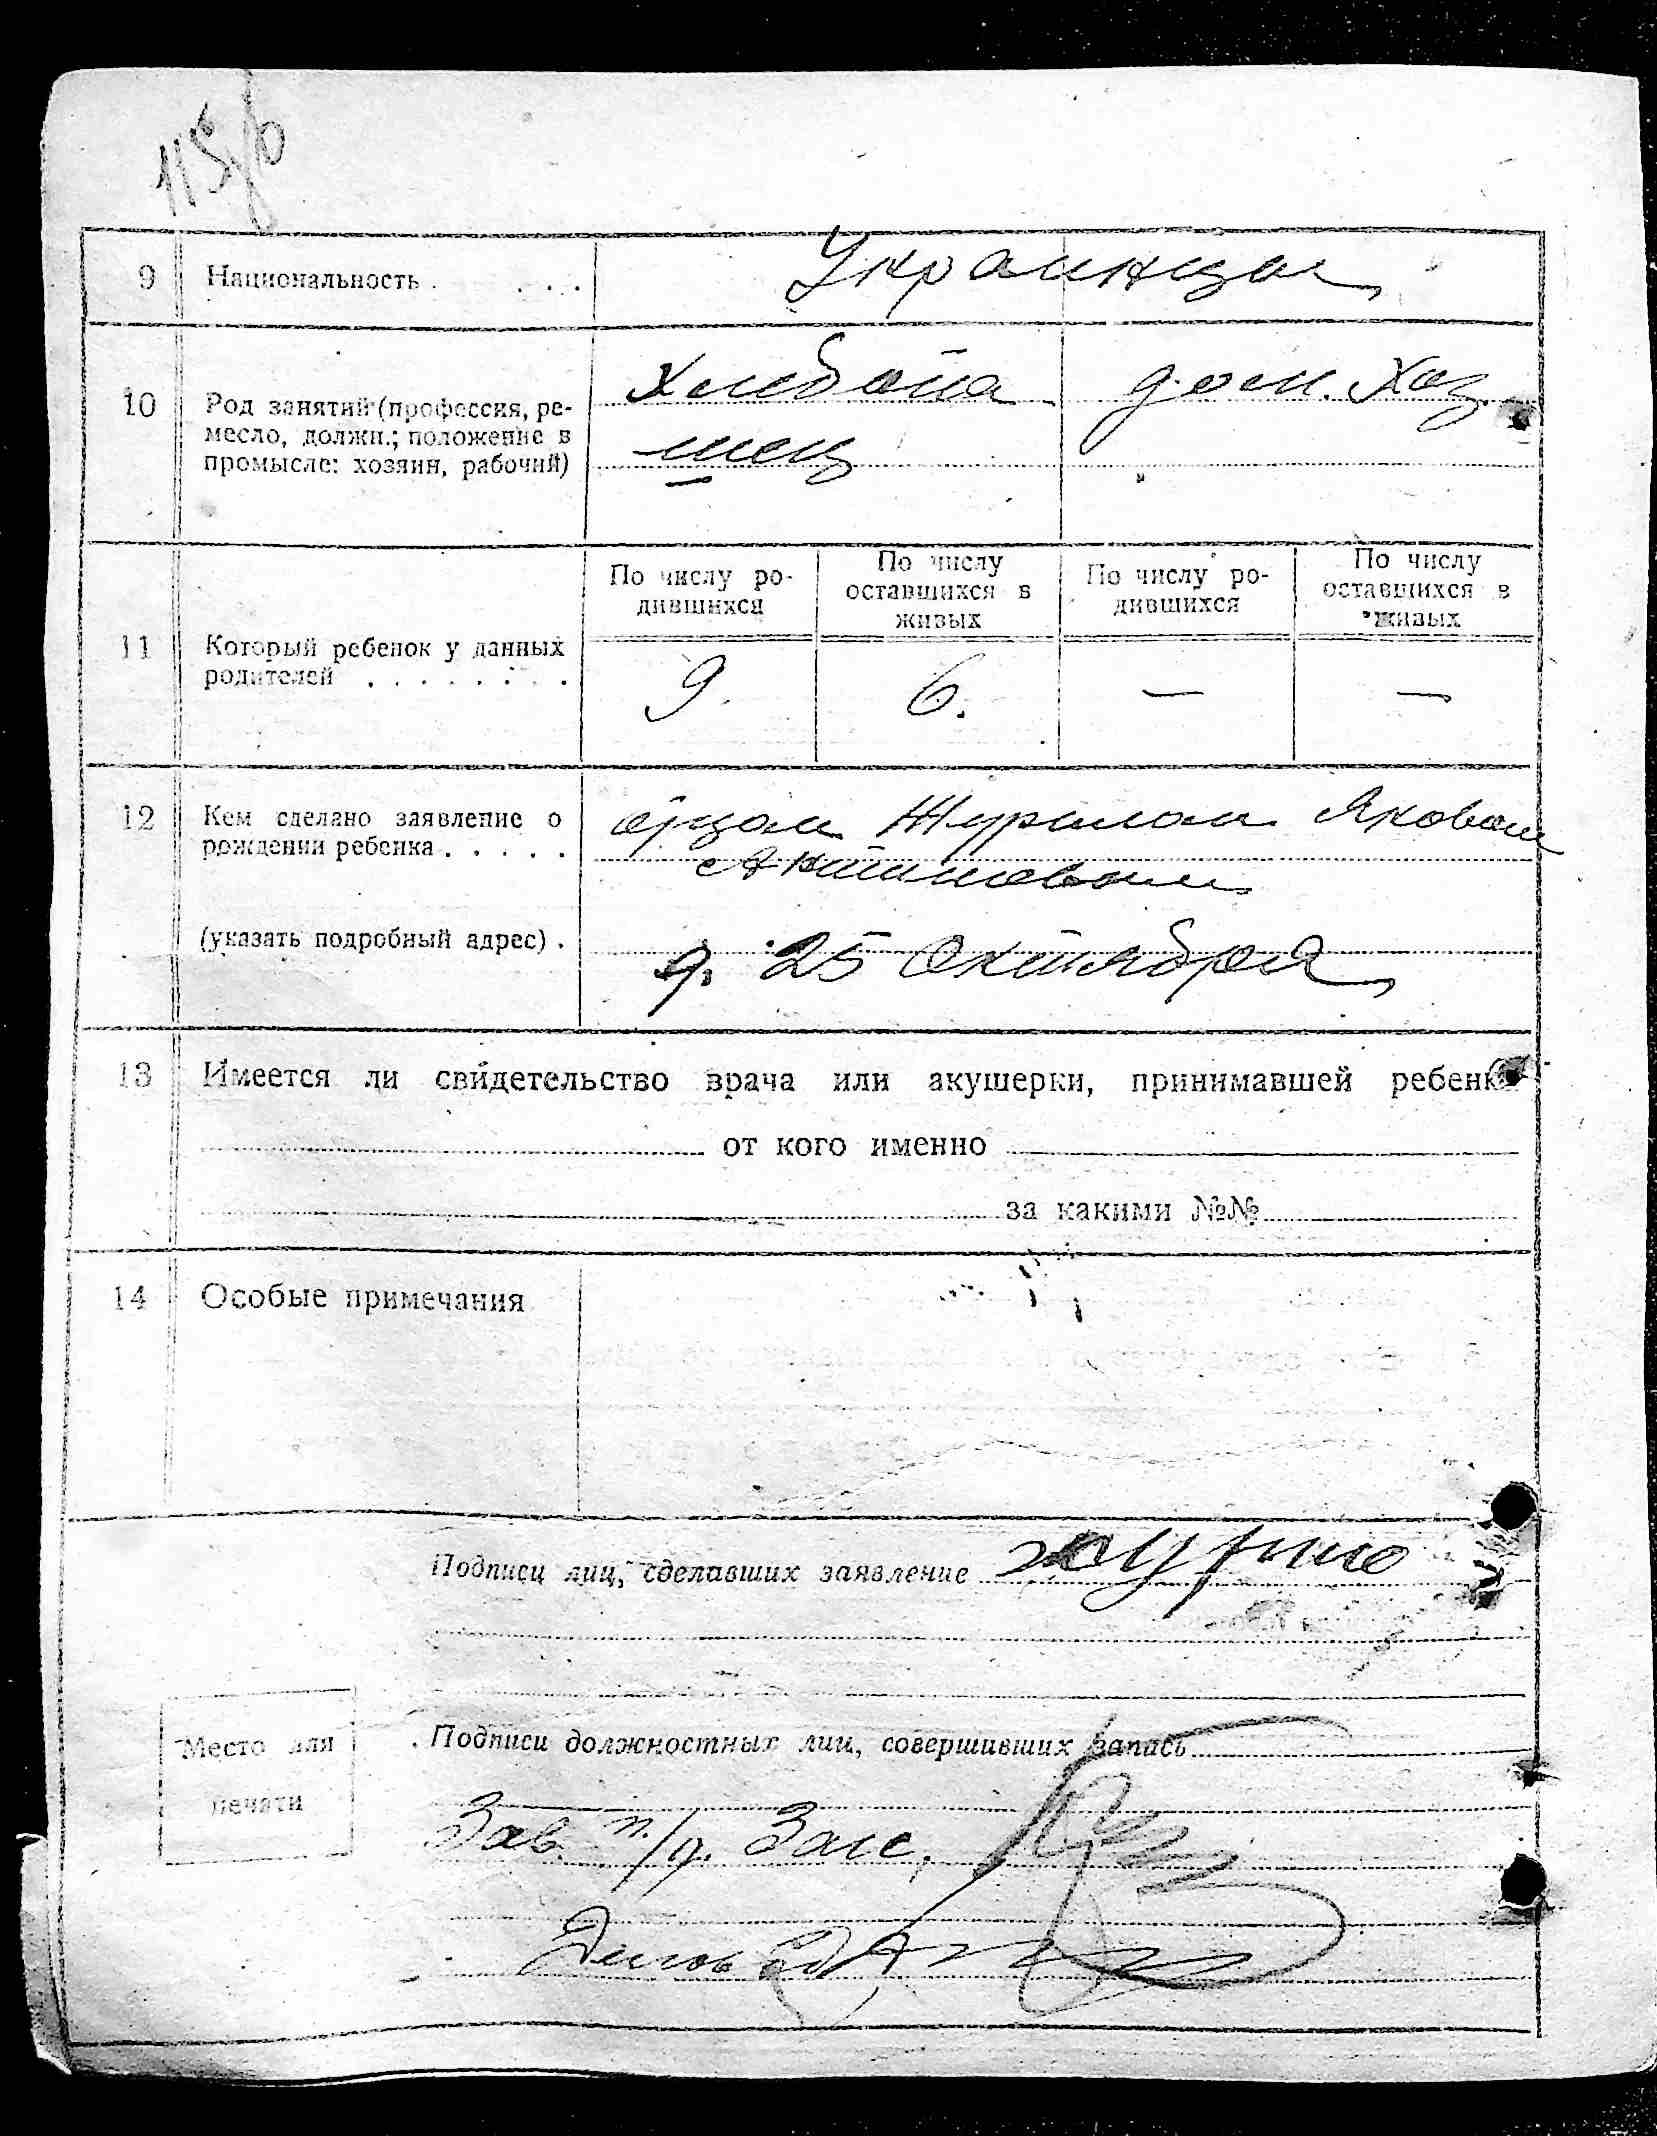 115/б
9 Национальность . . . . Украинцы
10 Род занятий (профессия, ре-
месло, должн.; положение в
промысле: хозяин, рабочий)
Хлебопа дом. Хоз.
шец
11 Который ребенок у данных
родителей . . . . . . . .
По числу ро-
дившихся
По числу
оставшихся в
живых
По числу ро-
дившихся
По числу
оставшихся в
живых
9. 6. — —
12 Кем сделано заявление о
рождении ребенка . . . . .
отцом Журилом Яковом
(указать подробный адрес) .
д. 25 Октября
13 Имеется ли свидетельство врача или акушерки, принимавшей ребенка
от кого именно
за какими №№
14 Особые примечания
Подписи лиц, сделавших заявление
Место для
печати
Подписи должностных лиц, совершивших запись
Зав. п/д. Загс.